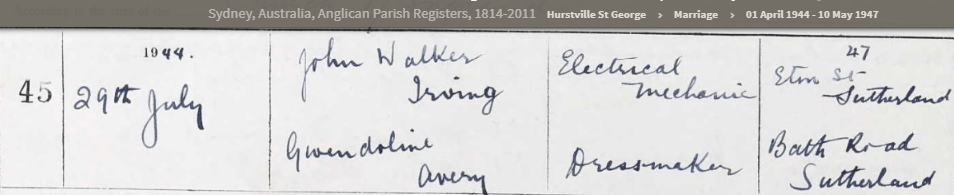 Sydney, Australia, Anglican Parish Registers, 1814-2011 Hurstville St George > Marriage > 01 April 1944 - 10 May 1947
45
1944.
29th July
John Walker
Irving
Gwendoline
Avery
Electrical
Mechanic
Dressmaker
47
Eton St
Sutherland
Bath Road
Sutherland